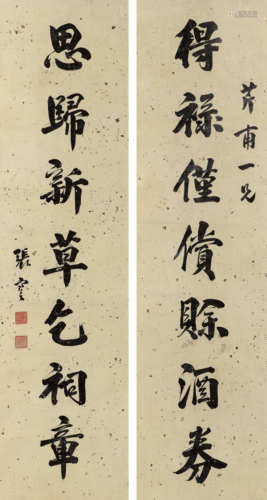 芹甫一兄
得祿僅償賒酒券
思歸新草乞祠章
張謇